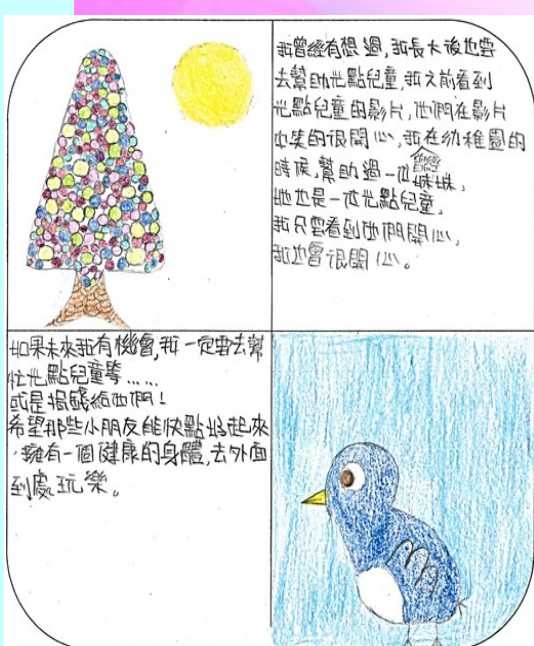 我曾經有想過,我長大後也要
去幫助光點兒童,我之前看到
光點兒童的影片,他們在影片
中笑的很開心,我在幼稚園的
時候,幫助過一位妹妹,
曾經
她也是一位光點兒童,
我只要看到他們開心,
我也會很開心。
如果未來我有機會,我一定要去幫
忙光點兒童等……
或是捐錢給他們!
希望那些小朋友能快點好起來
,擁有一個健康的身體,去外面
到處玩樂。